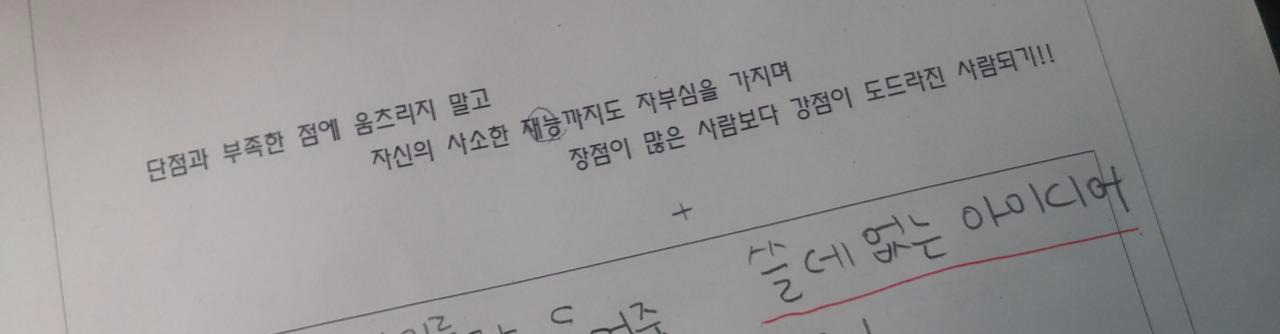 단점과 부족한 점에 움츠리지 말고
자신의 사소한 재능까지도 자부심을 가지며
장점이 많은 사람보다 강점이 도드라진 사람되기!!
+
쓸데없는 아이디어